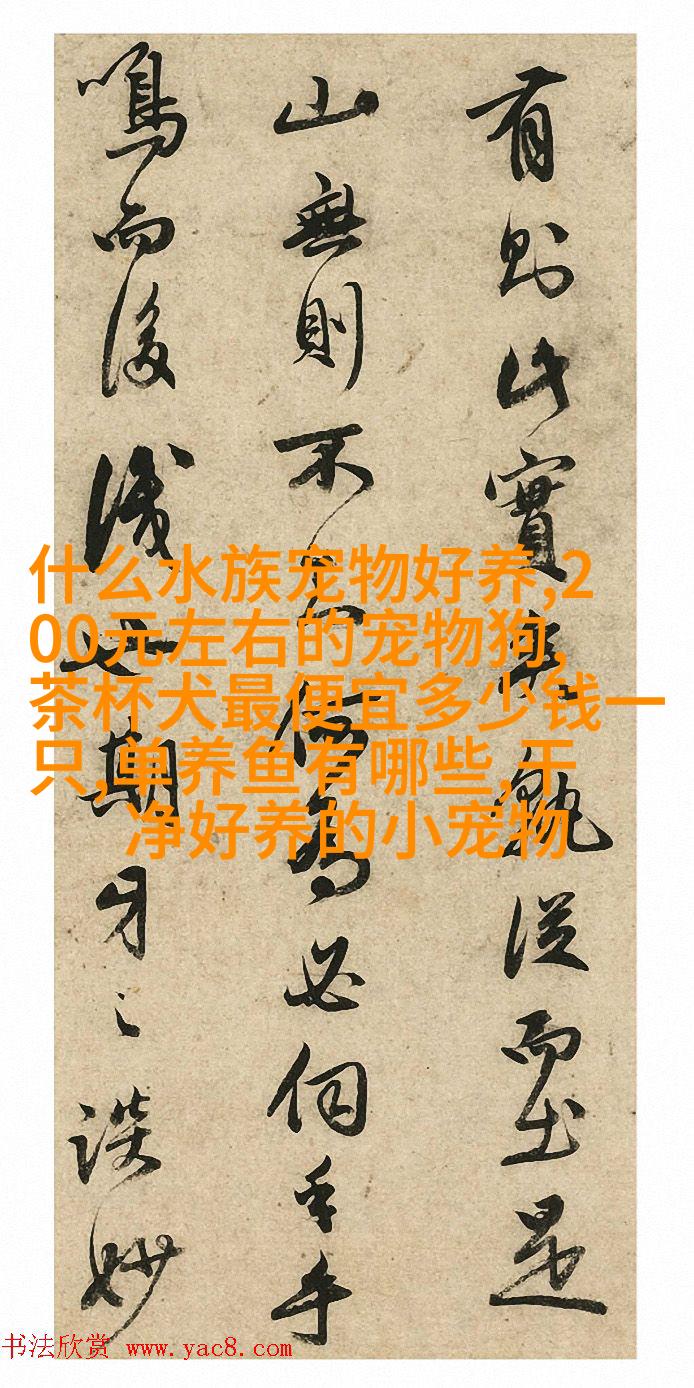 有則此實孰從而出是
山無則不為必伺手手
鳴而後識世期牙之談妙
什么水族宠物好养,2
00元左右的宠物狗,
茶杯犬最便宜多少钱一
只,单养鱼有哪些,干
净好养的小宠物
书法欣赏 www.yac8.com